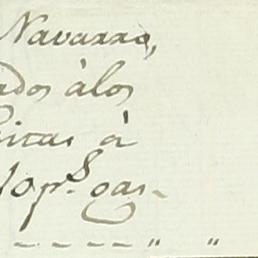 Navarro,
ados àlos
sitas à
10 p.s gas-
- - - - - " "